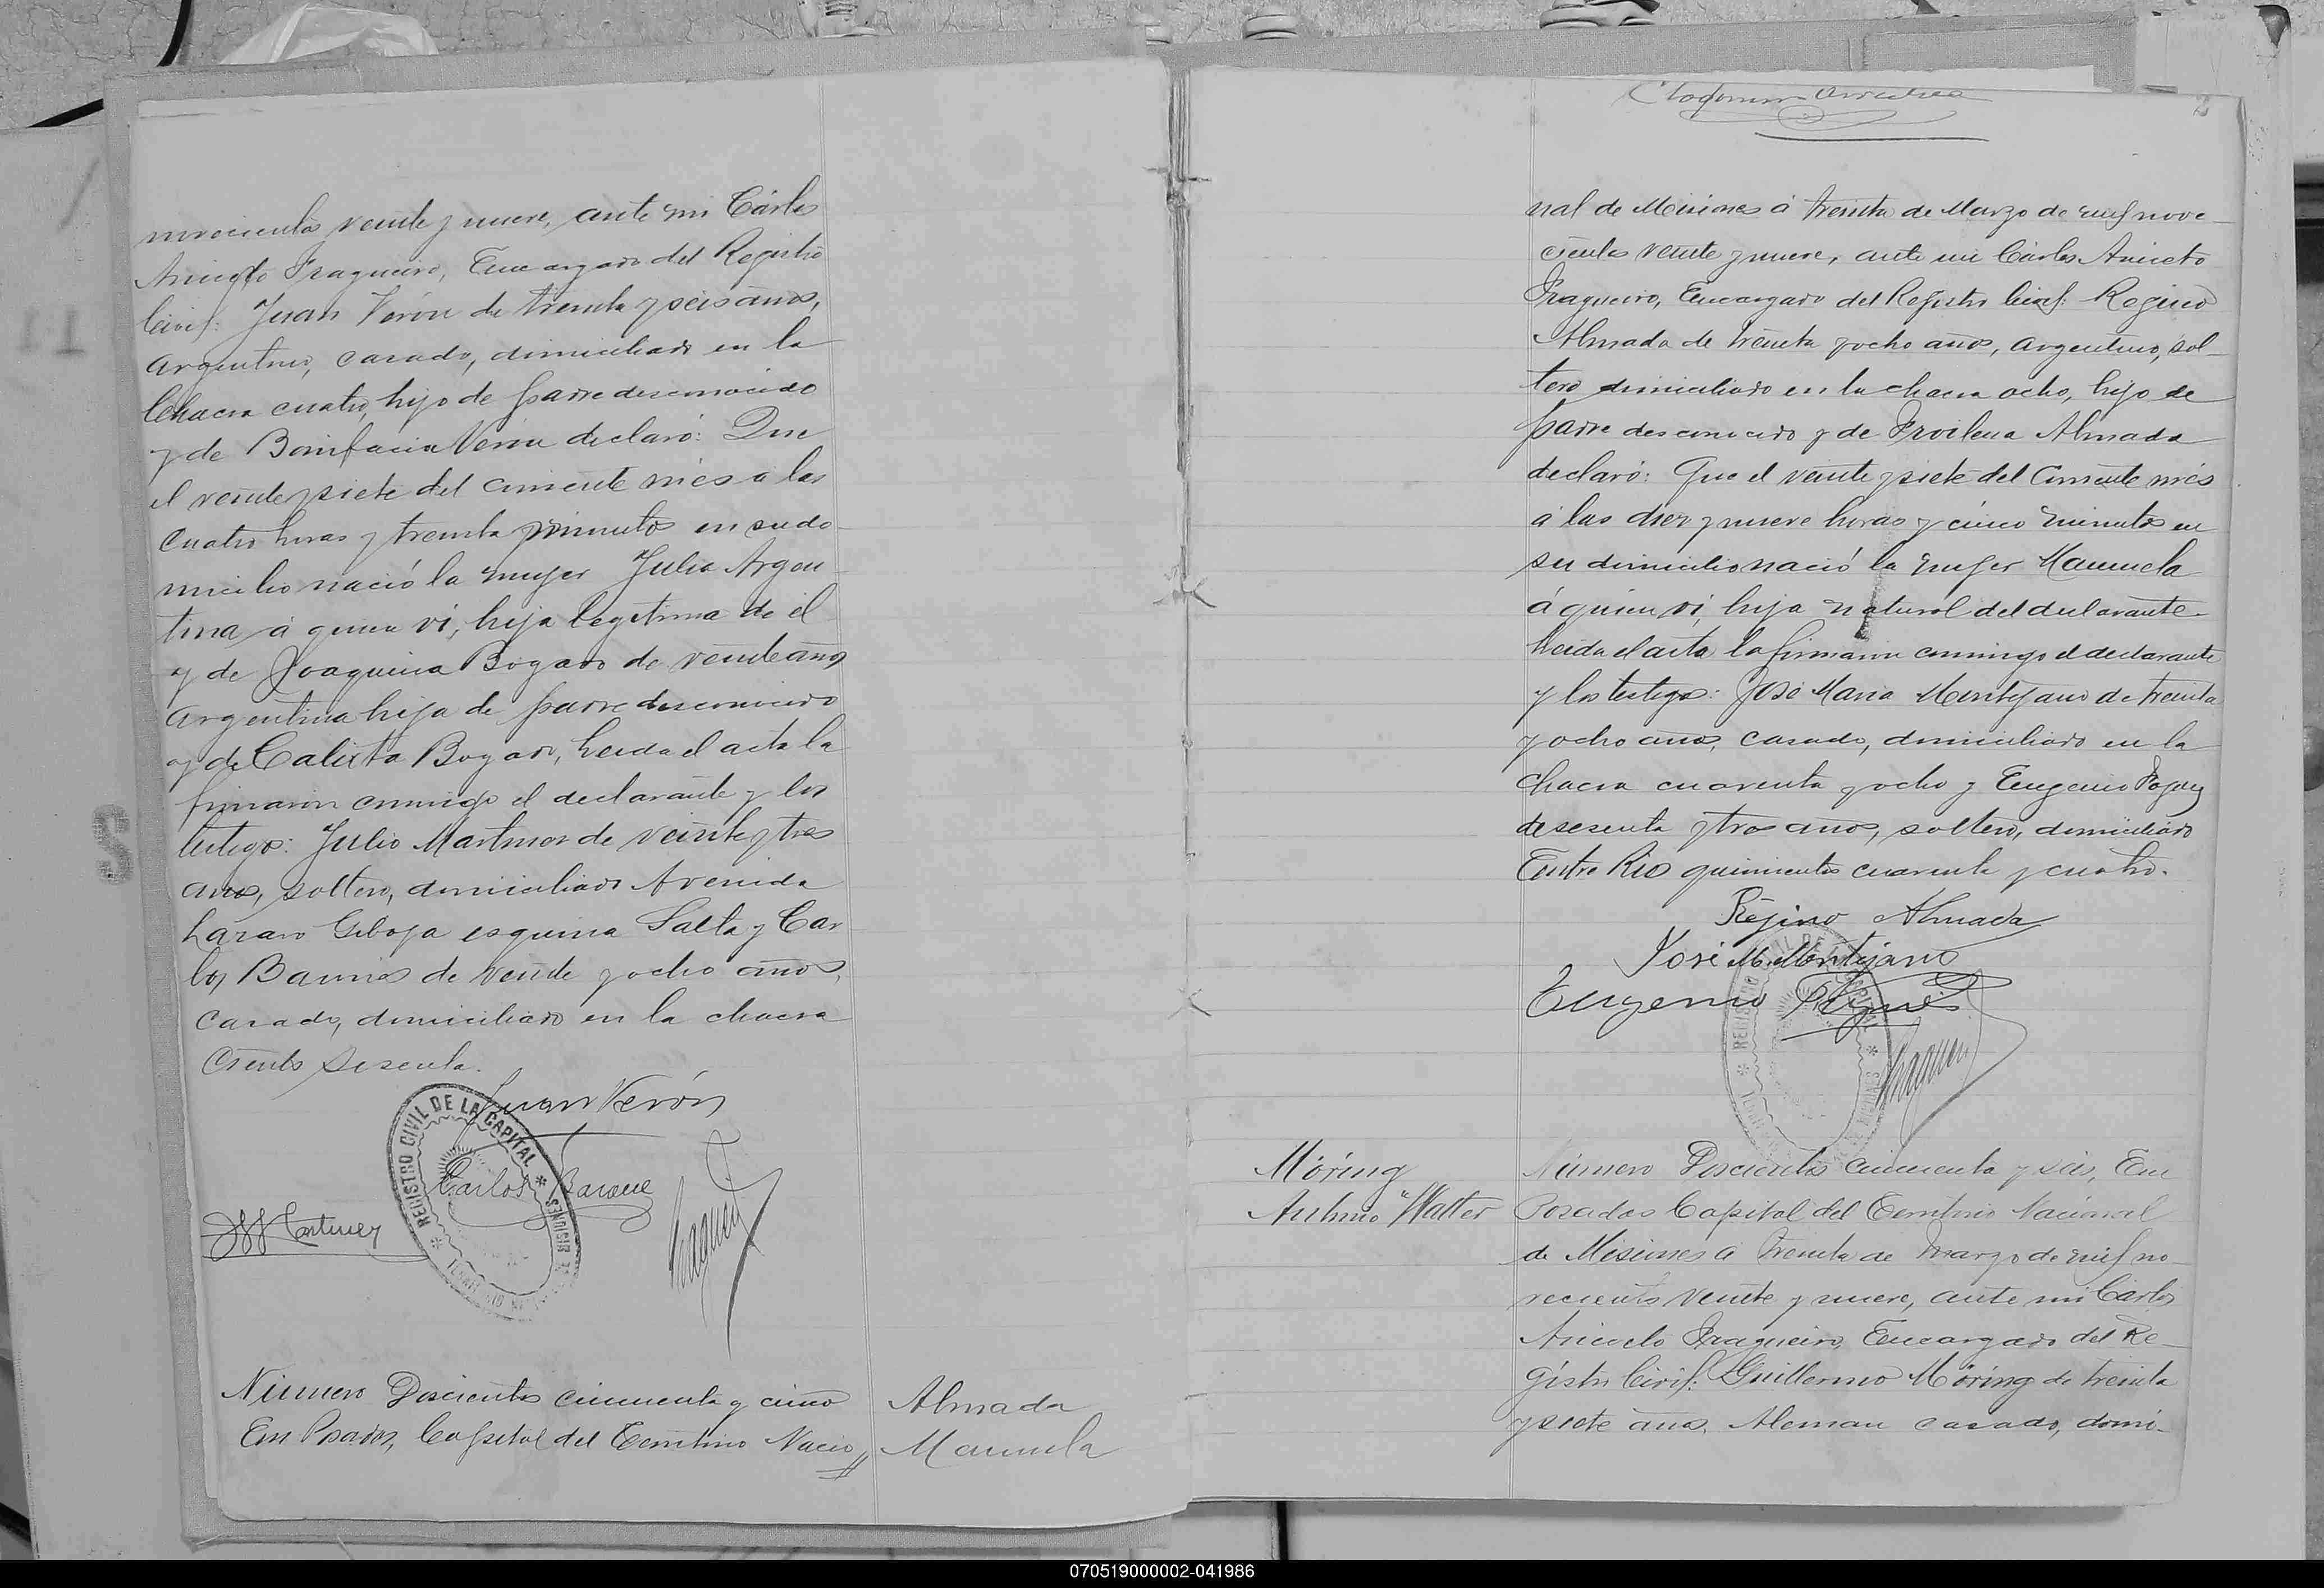 novecientos veinte y nueve, ante mi Cárlos
Aniceto Fragueiro, Encargado del Registro
Civil: Juan Verón de treinta y seis años,
argentino, casado, domiciliado en la
Chacra cuatro, hijo de padre desconocido
y de Bonifacia Verón declaró: Que
el veinte y siete del corriente més a las
cuatro horas y treinta minutos en su do-
micilio nació la mujer Julia Argen-
tina á quien ví, hija legitima de él
y de Joaquina Bogado de veinte años
argentina hija de padre desconocido
y de Calixta Bogado, Leida el acta la
firmaron conmigo el declarante y los
testigos: Julio Martinez de veinte y tres
años, soltero, domiciliado Avenida
Lazaro Giboja esquina Salta y Car-
los Barrios de veinte y ocho años,
casado, domiciliado en la chacra
Ciento sesenta.
Juan Verón
REGISTRO CIVIL DE LA CAPITAL * MISIONES
Carlos
Martinez
Fragueiro
Número Doscientos cincuenta y cinco
Almada
En Posadas, Capital del Territorio Nacio
Manuela
2
nal de Misiones á treinta de Marzo de mil nove-
cientos veinte y nueve, ante mi Cárlos Aniceto
Fragueiro, Encargado del Registro Civil: Regino
Almada de treinta y ocho años, argentino, sol-
tero domiciliado en la chacra ocho, hijo de
padre desconocido y de Froilena Almada
declaró: Que el veinte y siete del corriente més
á las diez y nueve horas y cinco minutos en
su domicilio nació la mujer Manuela
á quien ví, hija natural del declarante.
Leida el acta la firmaron conmigo el declarante
y los testigos: José Maria Montejano de treinta
y ocho años, casado, domiciliado en la
chacra cuarenta y ocho y Eugenio
de sesenta y tres años, soltero, domiciliado
Entre Rios quinientos cuarenta y cuatro.
Regino Almada
José M. Montejano
Eugenio
Fragueiro
Móring
Número Doscientos cincuenta y seis, En
Arturo Walter
Posadas Capital del Territorio Nacional
de Misiones á treinta de Marzo de mil no-
vecientos veinte y nueve, ante mi Carlos
Aniceto Fragueiro, Encargado del Re-
gistro Civil: Guillermo Móring de treinta
y siete años, Aleman casado, domi-
070519000002-041986